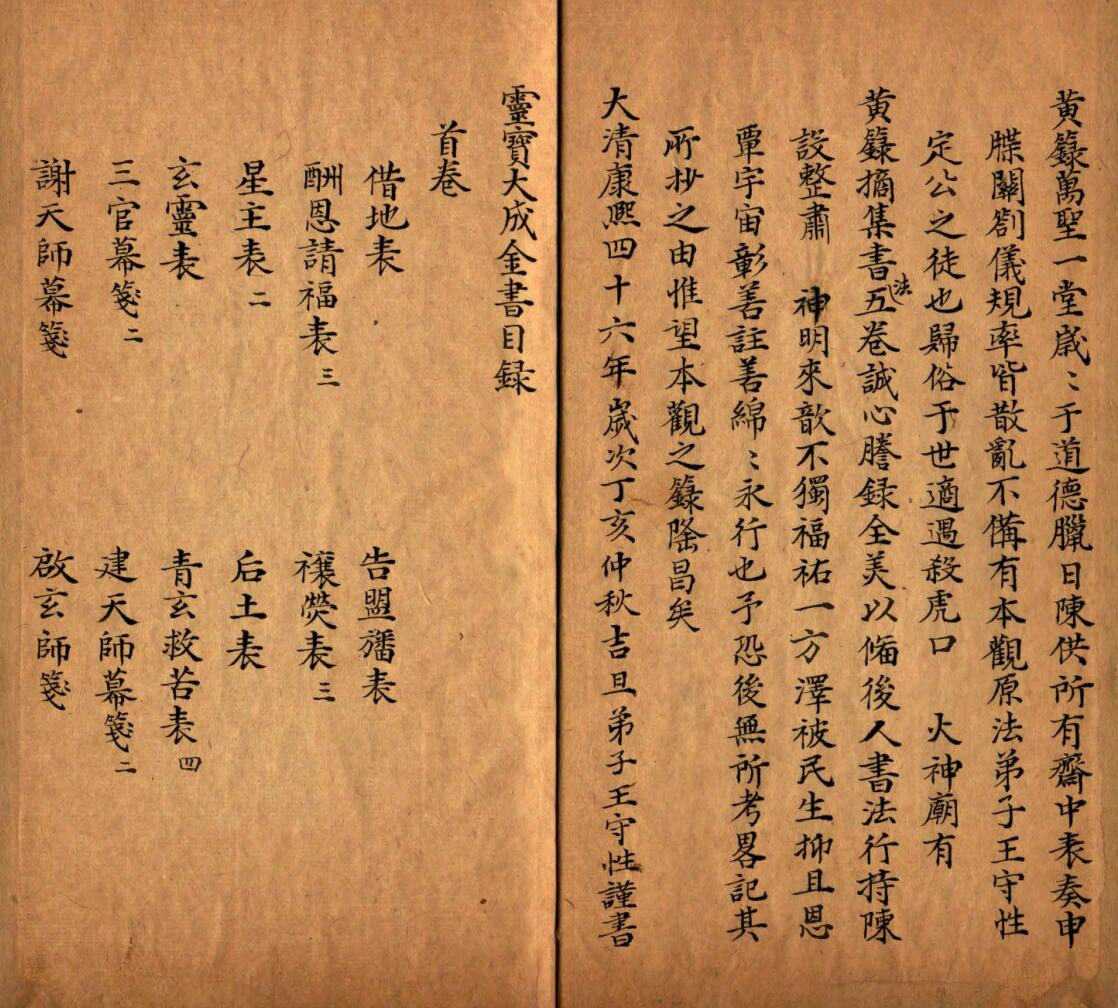 黄籙萬聖一堂歲〻于道德臘日陳供所有齋中表奏申
牒關劄儀規率皆散亂不備有本觀原法弟子王守性
定公之徒也歸俗于世適遇殺虎口　火神廟有
黄籙摘集書法五卷誠心謄録全美以俻後人書法行持陳
設整肅　神明來歆不獨福祐一方澤被民生抑且恩
覃宇宙彰善註善綿〻永行也予恐後無所考畧記其
所抄之由惟望本觀之籙隆昌矣
大清康熙四十六年歲次丁亥仲秋吉旦弟子王守性謹書
靈寶大成金書目録
首卷
借地表　告盟旛表
酬恩請福表三　禳熒表三
星主表二　后土表
玄靈表　青玄救苦表四
三官幕箋二　建天師幕箋二
謝天師幕箋　啟玄師箋